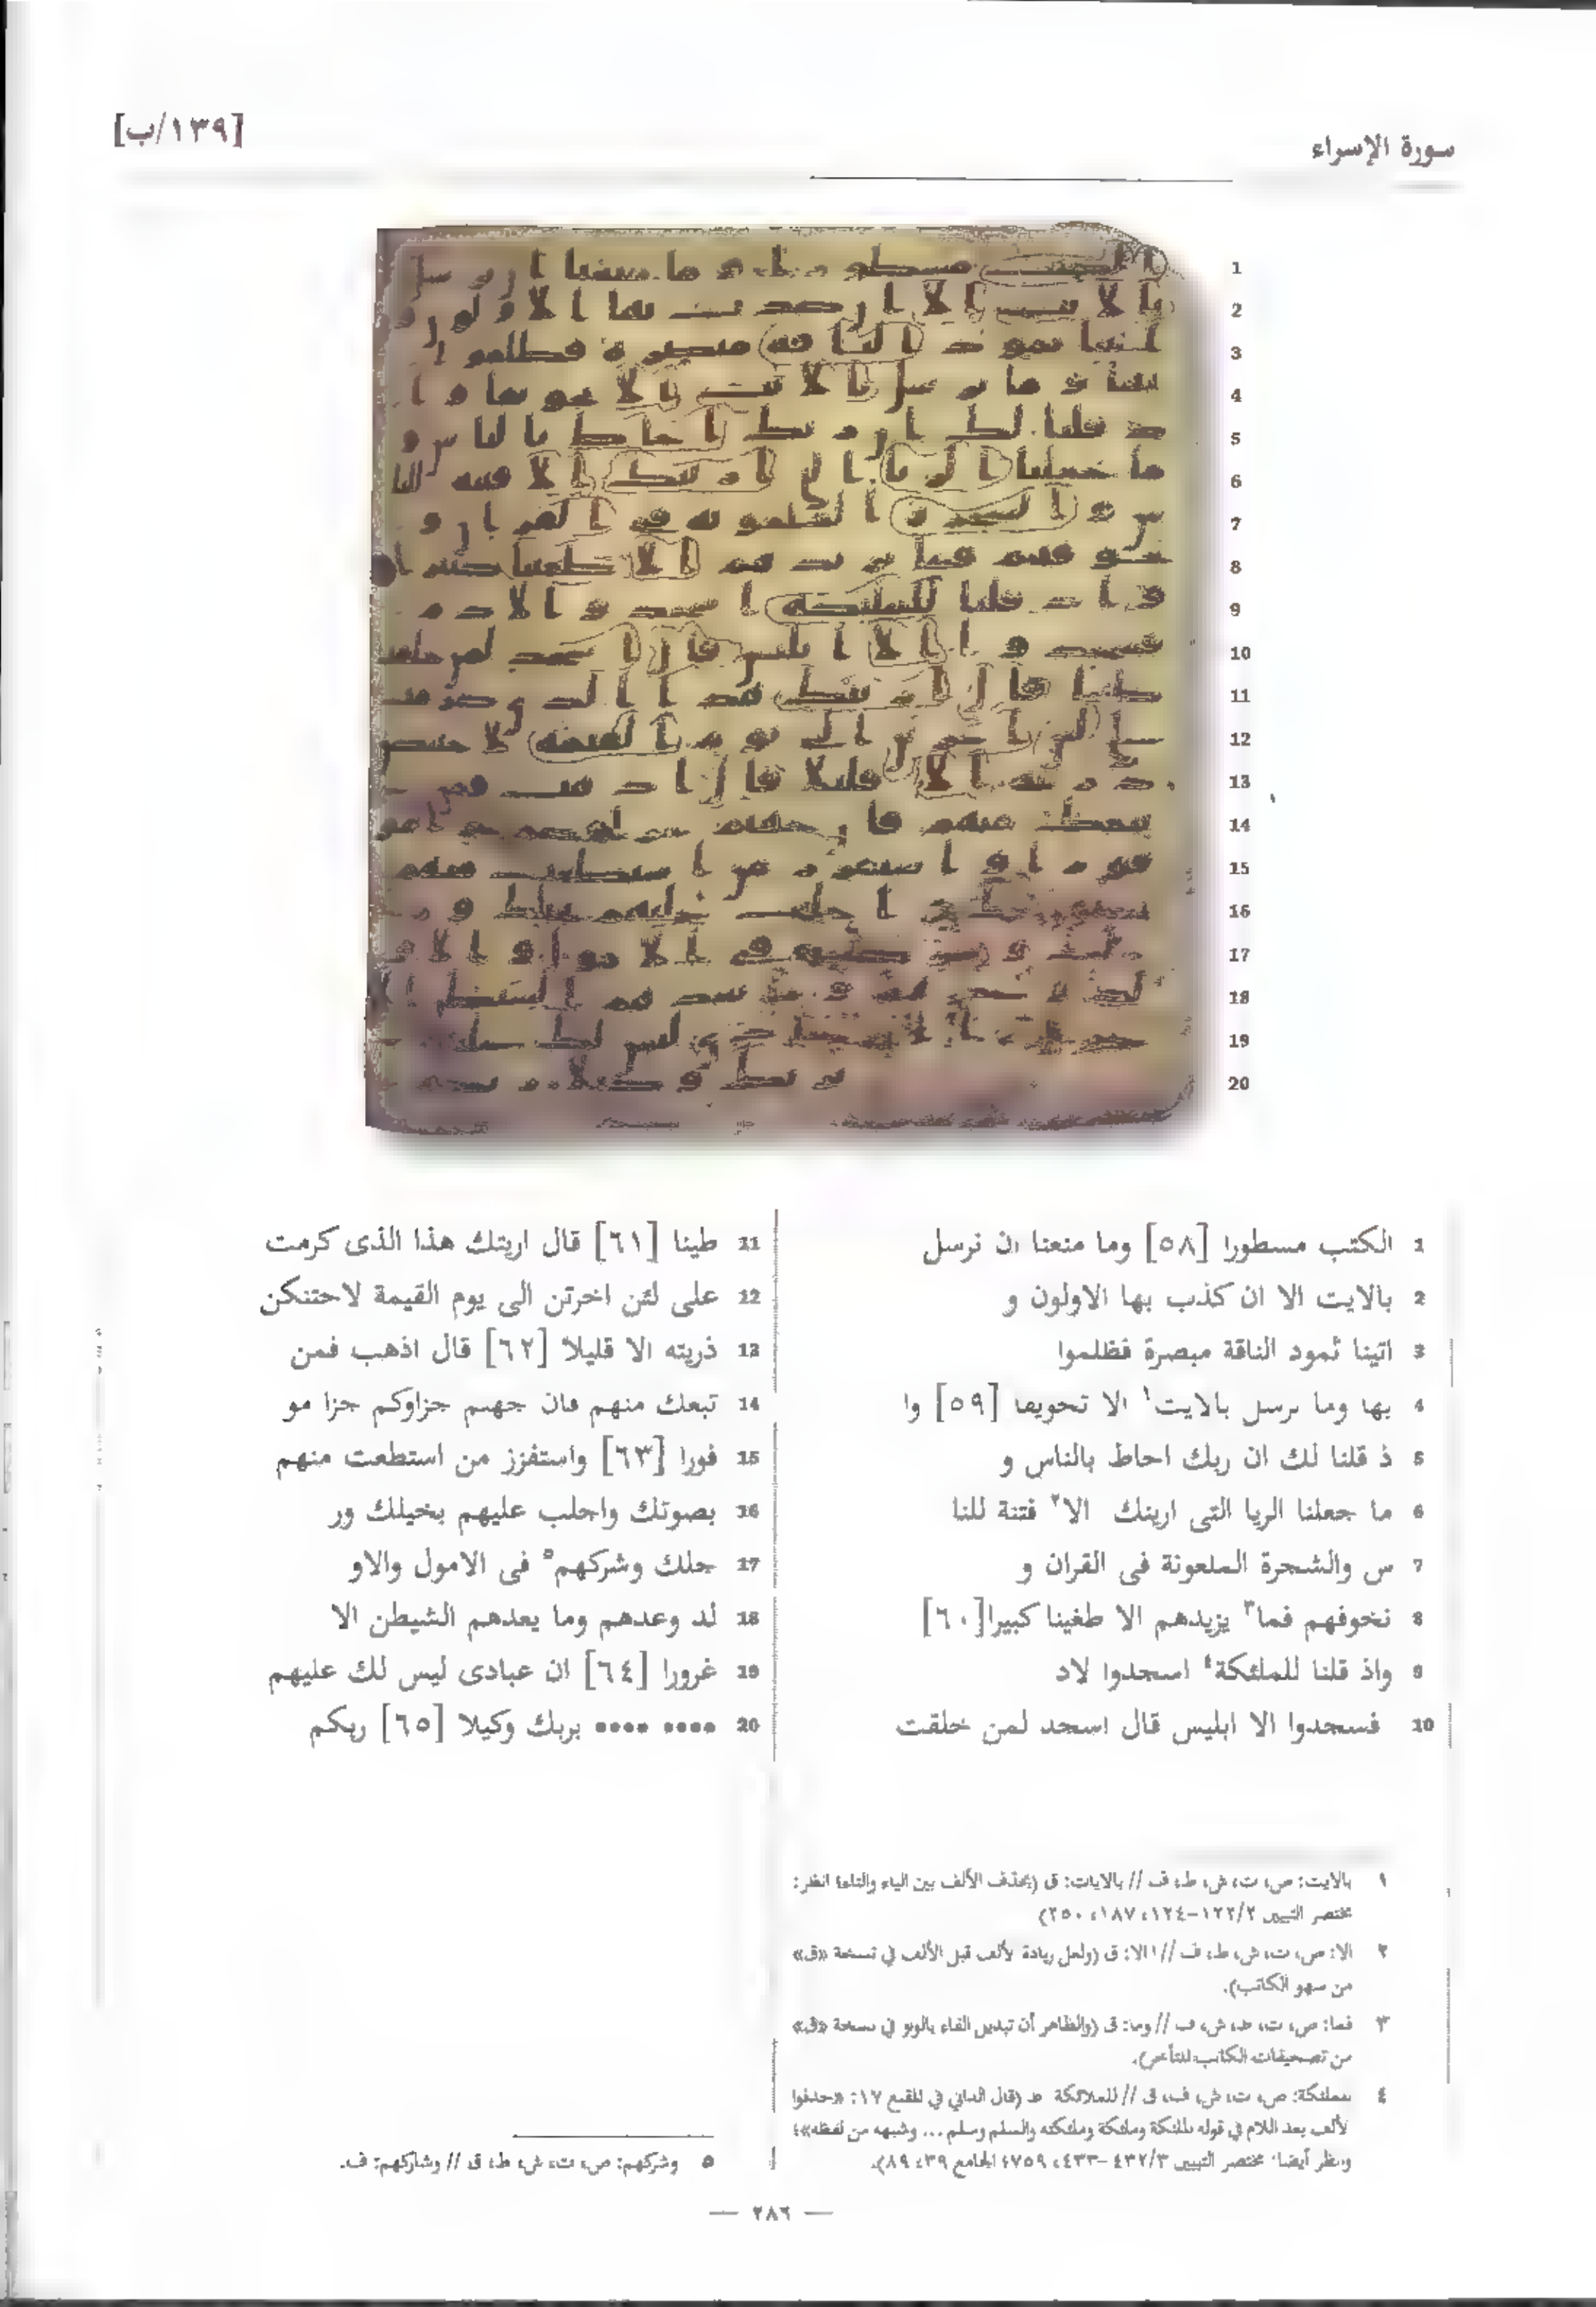 [١٣٩/ب]
سورة الإسراء
1 الكتب مسطورا [٥٨] وما منعنا ان نرسل
2 بالايت الا ان كذب بها الاولون و
3 اتينا ثمود الناقة مبصرة فظلموا
4 بها وما نرسل بالايت١ الا تخويفا [٥٩] وا
5 ذ قلنا لك ان ربك احاط بالناس و
6 ما جعلنا الريا التى ارينك الا٢ فتنة للنا
7 س والشجرة الملعونة فى القران و
8 نخوفهم فما٣ يزيدهم الا طغينا كبيرا [٦٠]
9 واذ قلنا للملئكة٤ اسجدوا لاد
10 فسجدوا الا ابليس قال اسجد لمن خلقت
11 طينا [٦١] قال اريتك هذا الذى كرمت
12 على لئن اخرتن الى يوم القيمة لاحتنكن
13 ذريته الا قليلا [٦٢] قال اذهب فمن
14 تبعك منهم فان جهنم جزاوكم جزا مو
15 فورا [٦٣] واستفزز من استطعت منهم
16 بصوتك واجلب عليهم بخيلك ور
17 جلك وشركهم٥ فى الامول والاو
18 لد وعدهم وما يعدهم الشيطن الا
19 غرورا [٦٤] ان عبادى ليس لك عليهم
20 •••• •••• بربك وكيلا [٦٥] ربكم
١ بالايت: ص، ت، ش، ط، ف // بالايات: ق (بحذف الألف بين الياء والتاء؛ انظر:
مختصر التبيين ١٢٢/٢-١٢٤، ١٨٧، ٢٥٠)
٢ الا: ص، ت، ش، ط، ف // االا: ق (ولعل زيادة الألف قبل الألف في نسخة «ق»
من سهو الكاتب).
٣ فما: ص، ت، ط، ش، ف // وما: ق (والظاهر أن تبديل الفاء بالواو في نسخة «ق»
من تصحيفات الكاتب المتأخر).
٤ للملئكة: ص، ت، ش، ف، ق // للملائكة: ط (قال الداني في المقنع ١٧: «حذفوا
الألف بعد اللام في قوله الملئكة وملئكة وملئكته والسلم وسلم ... وشبهه من لفظه»؛
وانظر أيضا: مختصر التبيين ٤٣٢/٣-٤٣٣، ٧٥٩؛ الجامع ٣٩، ٨٩).
٥ وشركهم: ص، ت، ش، ط، ق // وشاركهم: ف.
— ٢٨٦ —